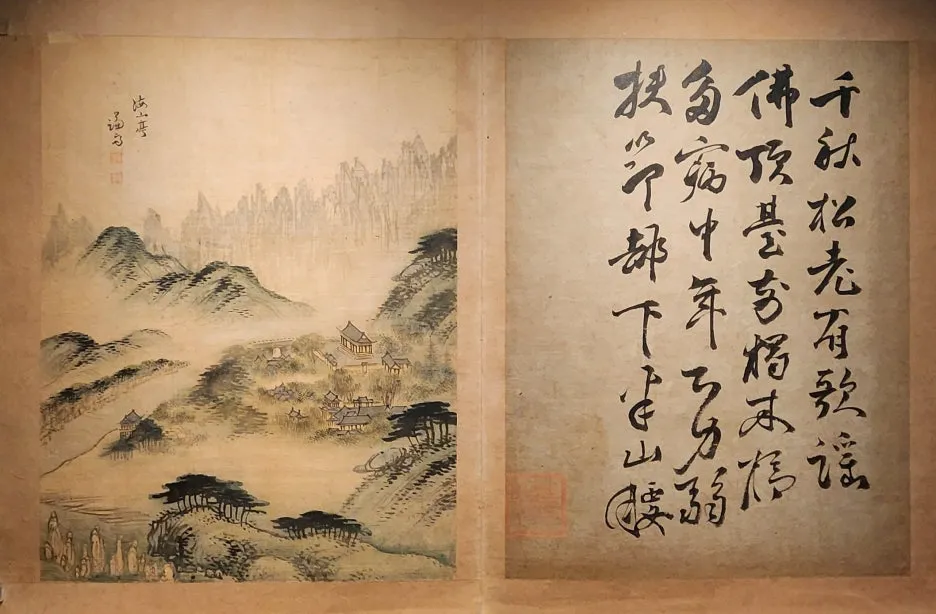 千秋松老有歌謠
佛頂臺前獨木橋
多病中年力弱
扶筇却下半山腰
海山亭
謙齋